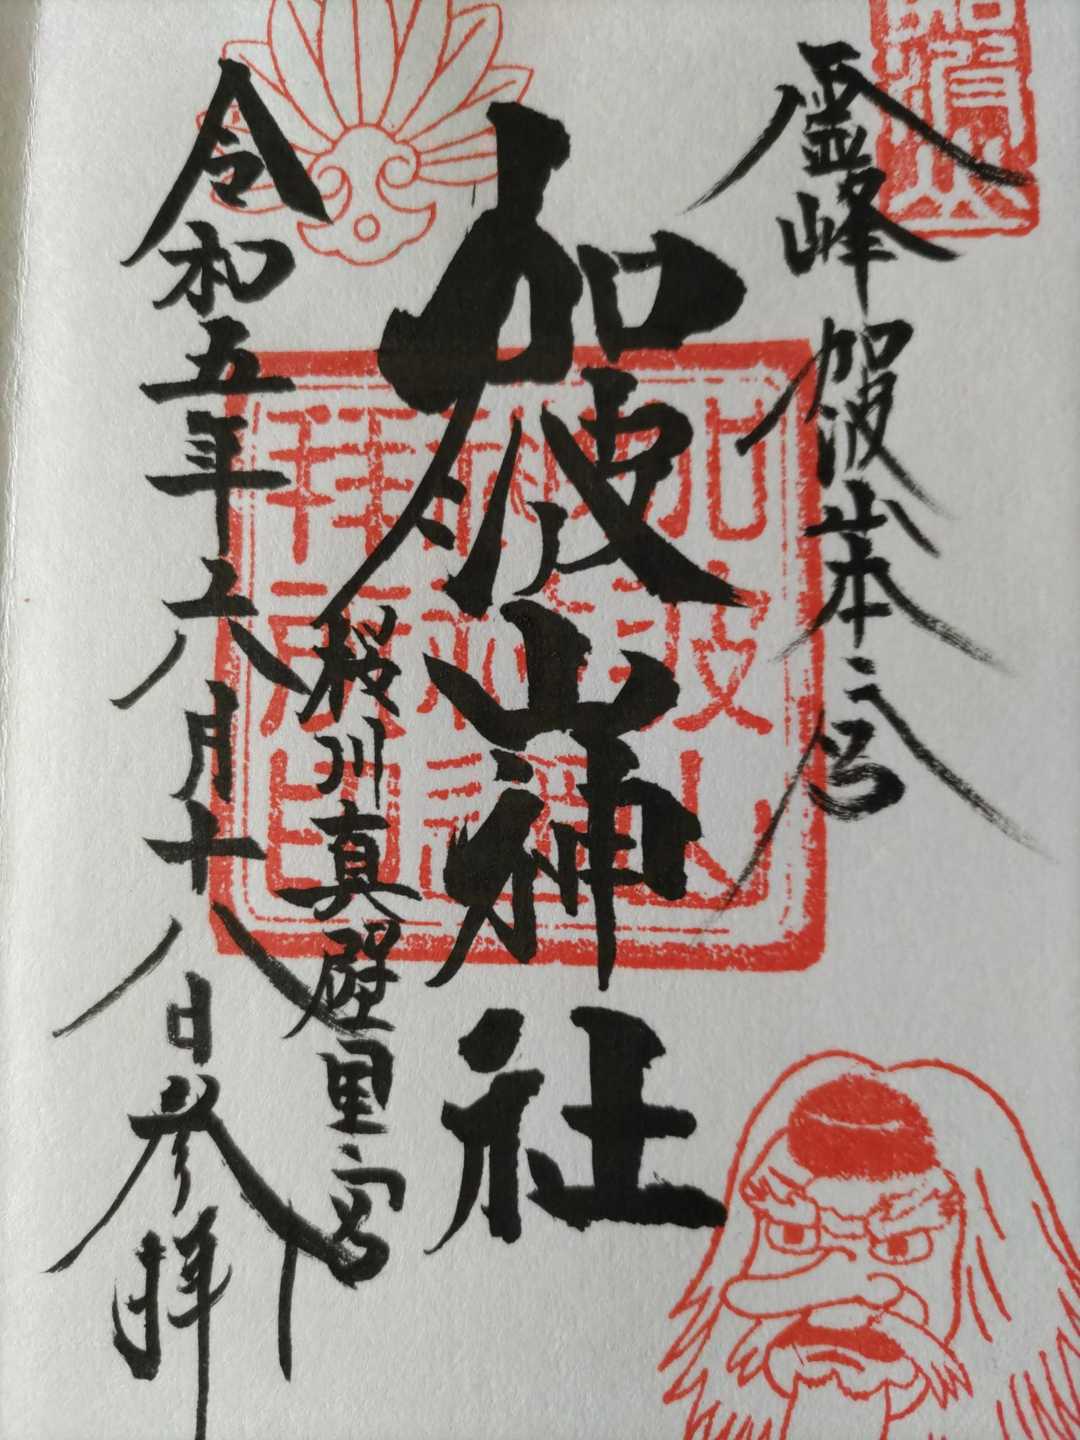 加波山
霊峰 加波山本宮
加波山神社
桜川真壁里宮
令和五年六月十八日参拝